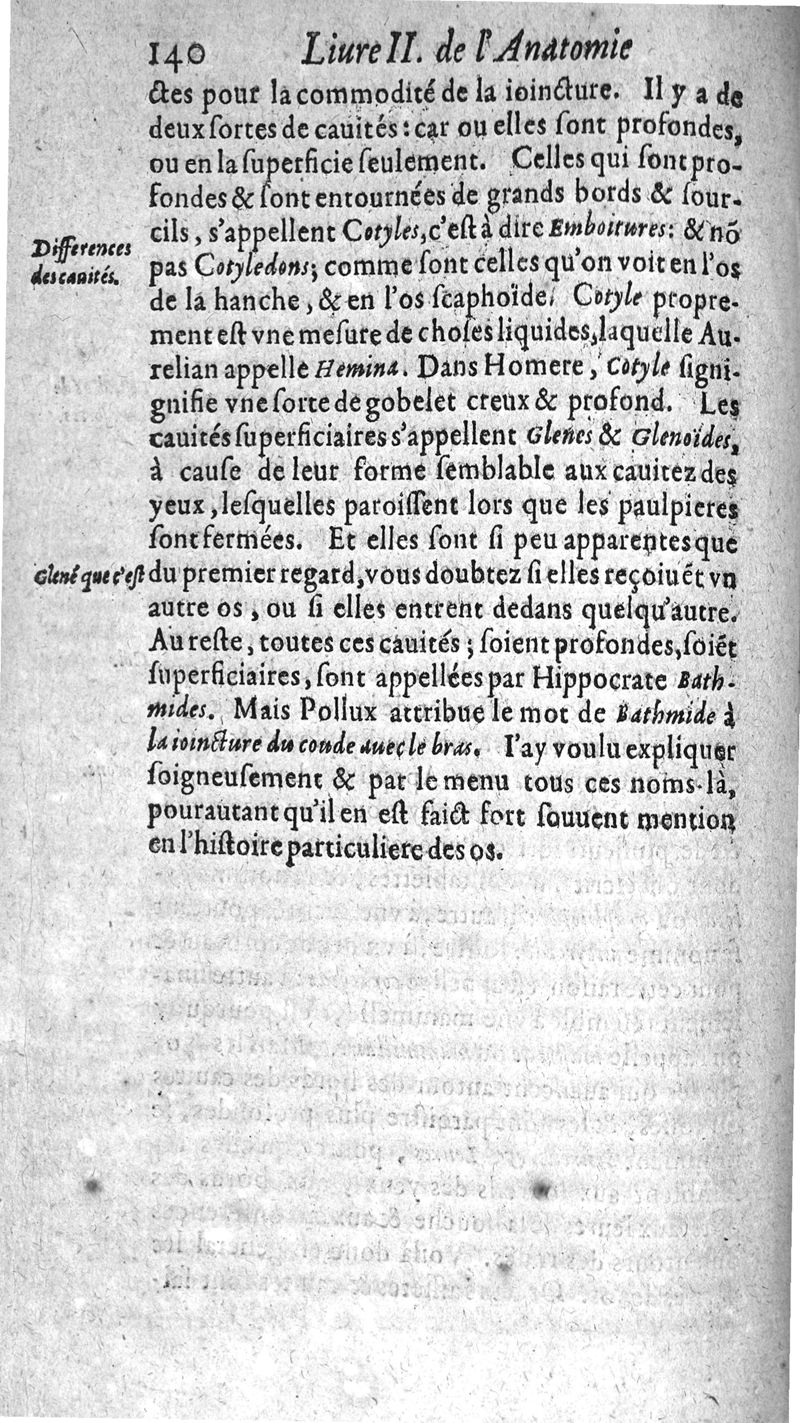 140 Liure II. de l'Anatomie
ctes pour la commodité de la ioincture. Il y a de
deux ſortes de cauités : car ou elles ſont profondes,
ou en la ſuperficie ſeulement. Celles qui ſont pro-
fondes & ſont entournées de grands bords & ſour-
cils, s'appellent Cotyles, c'eſt à dire Emboitures: & nõ
Differences
des cauités.
pas Cotyledons; comme ſont celles qu'on voit en l'os
de la hanche, & en l'os ſcaphoïde. Cotyle propre-
ment eſt vne meſure de choſes liquides, laquelle Au-
relian appelle Hemina. Dans Homere, Cotyle ſigni-
gnifie vne ſorte de gobelet creux & profond. Les
cauités ſuperficiaires s'appellent Glenes & Glenoïdes,
à cauſe de leur forme ſemblable aux cauitez des
yeux, leſquelles paroiſſent lors que les paulpieres
ſont fermées. Et elles ſont ſi peu apparentes que
Glené que c'eſt
du premier regard, vous doubtez ſi elles reçoiuẽt vn
autre os, ou ſi elles entrent dedans quelqu'autre.
Au reſte, toutes ces cauités; ſoient profondes, ſoiẽt
ſuperficiaires, ſont appellées par Hippocrate Bath-
mides. Mais Pollux attribue le mot de Bathmide à
la ioincture du coude auec le bras. I'ay voulu expliquer
ſoigneuſement & par le menu tous ces noms-là,
pourautant qu'il en eſt faict fort ſouuent mention
en l'hiſtoire particuliere des os.